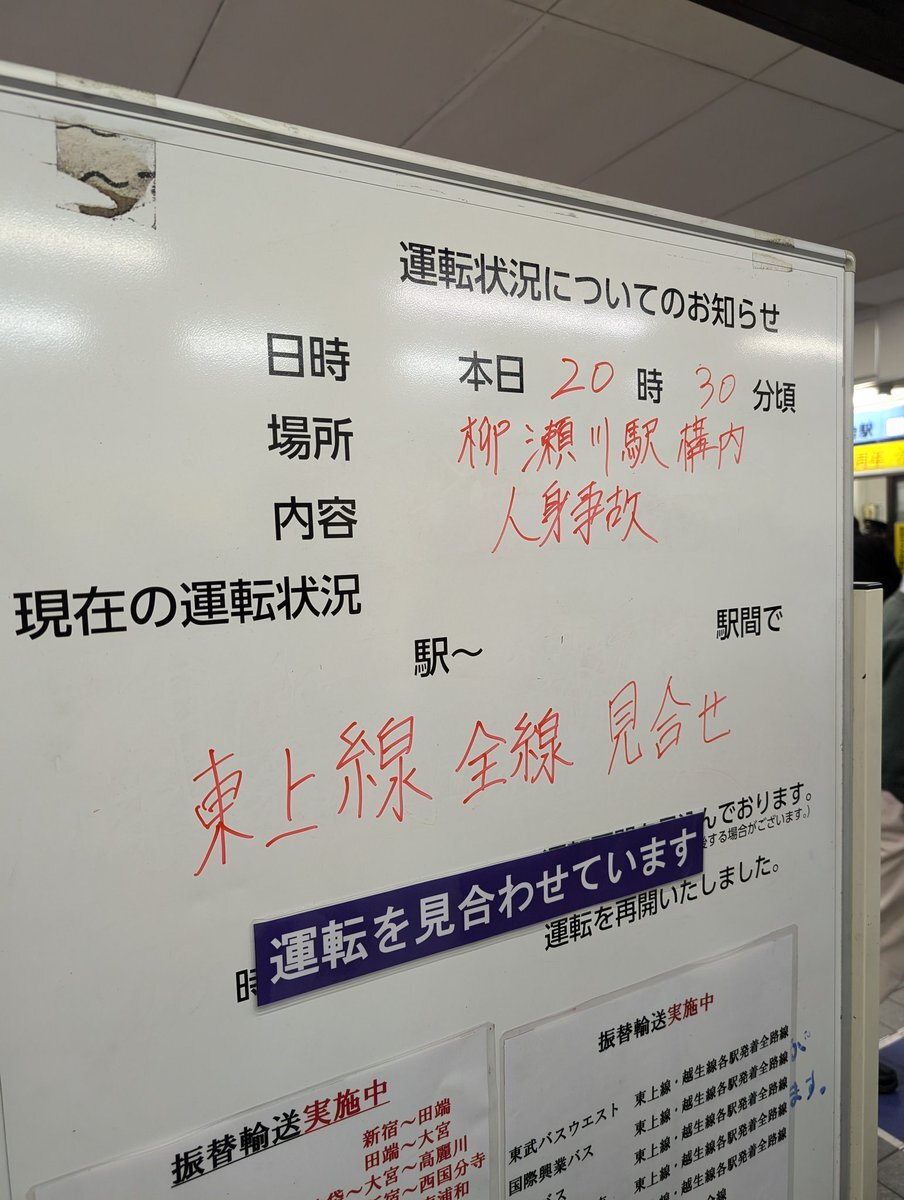 運転状況についてのお知らせ
日時 本日 20 時 30 分頃
場所 柳瀬川駅構内
内容 人身事故
現在の運転状況
駅～ 駅間で
東上線 全線 見合せ
んでおります。
する場合がございます。)
運転を見合わせています
運転を再開いたしました。
時
振替輸送実施中
新宿～田端
田端～大宮
～大宮～高麗川
～西国分寺
浦和
振替輸送実施中
東武バスウエスト 東上線・越生線各駅発着全路線
国際興業バス 東上線・越生線各駅発着全路線
バス 東上線・越生線各駅発着全路線
東上線・越生線各駅発着全路線
ます。